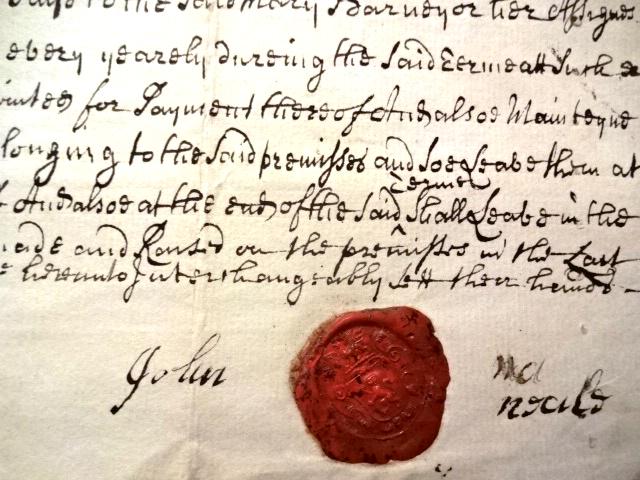 to the said Mary Harvey or her Assignes
every yearely dureing the said Terme att Such
inted for Payment thereof And alsoe Mainteyne
longing to the said premisses and soe Leave them at
Terme
And alsoe at the end of the said Shall Leave in the
made and Raised on the premisses in the Last
hereunto Interchangeably sett their hands
John
neale